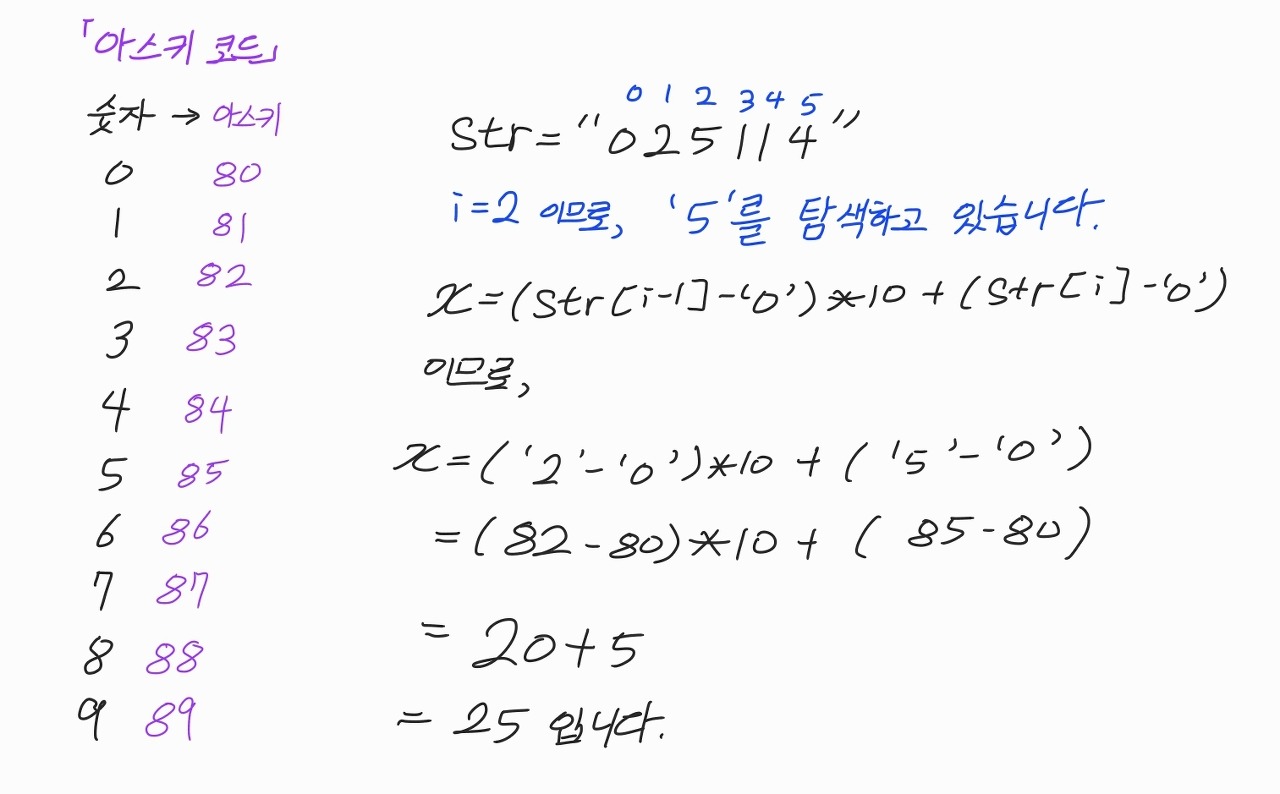 「아스키 코드」
숫자 → 아스키
0 80
1 81
2 82
3 83
4 84
5 85
6 86
7 87
8 88
9 89
0 1 2 3 4 5
Str = "025114"
i=2 이므로, '5'를 탐색하고 있습니다.
x=(Str[i-1]-'0')*10 + (Str[i]-'0')
이므로,
x=('2'-'0')*10 + ('5'-'0')
=(82-80)*10 + (85-80)
= 20+5
= 25 입니다.